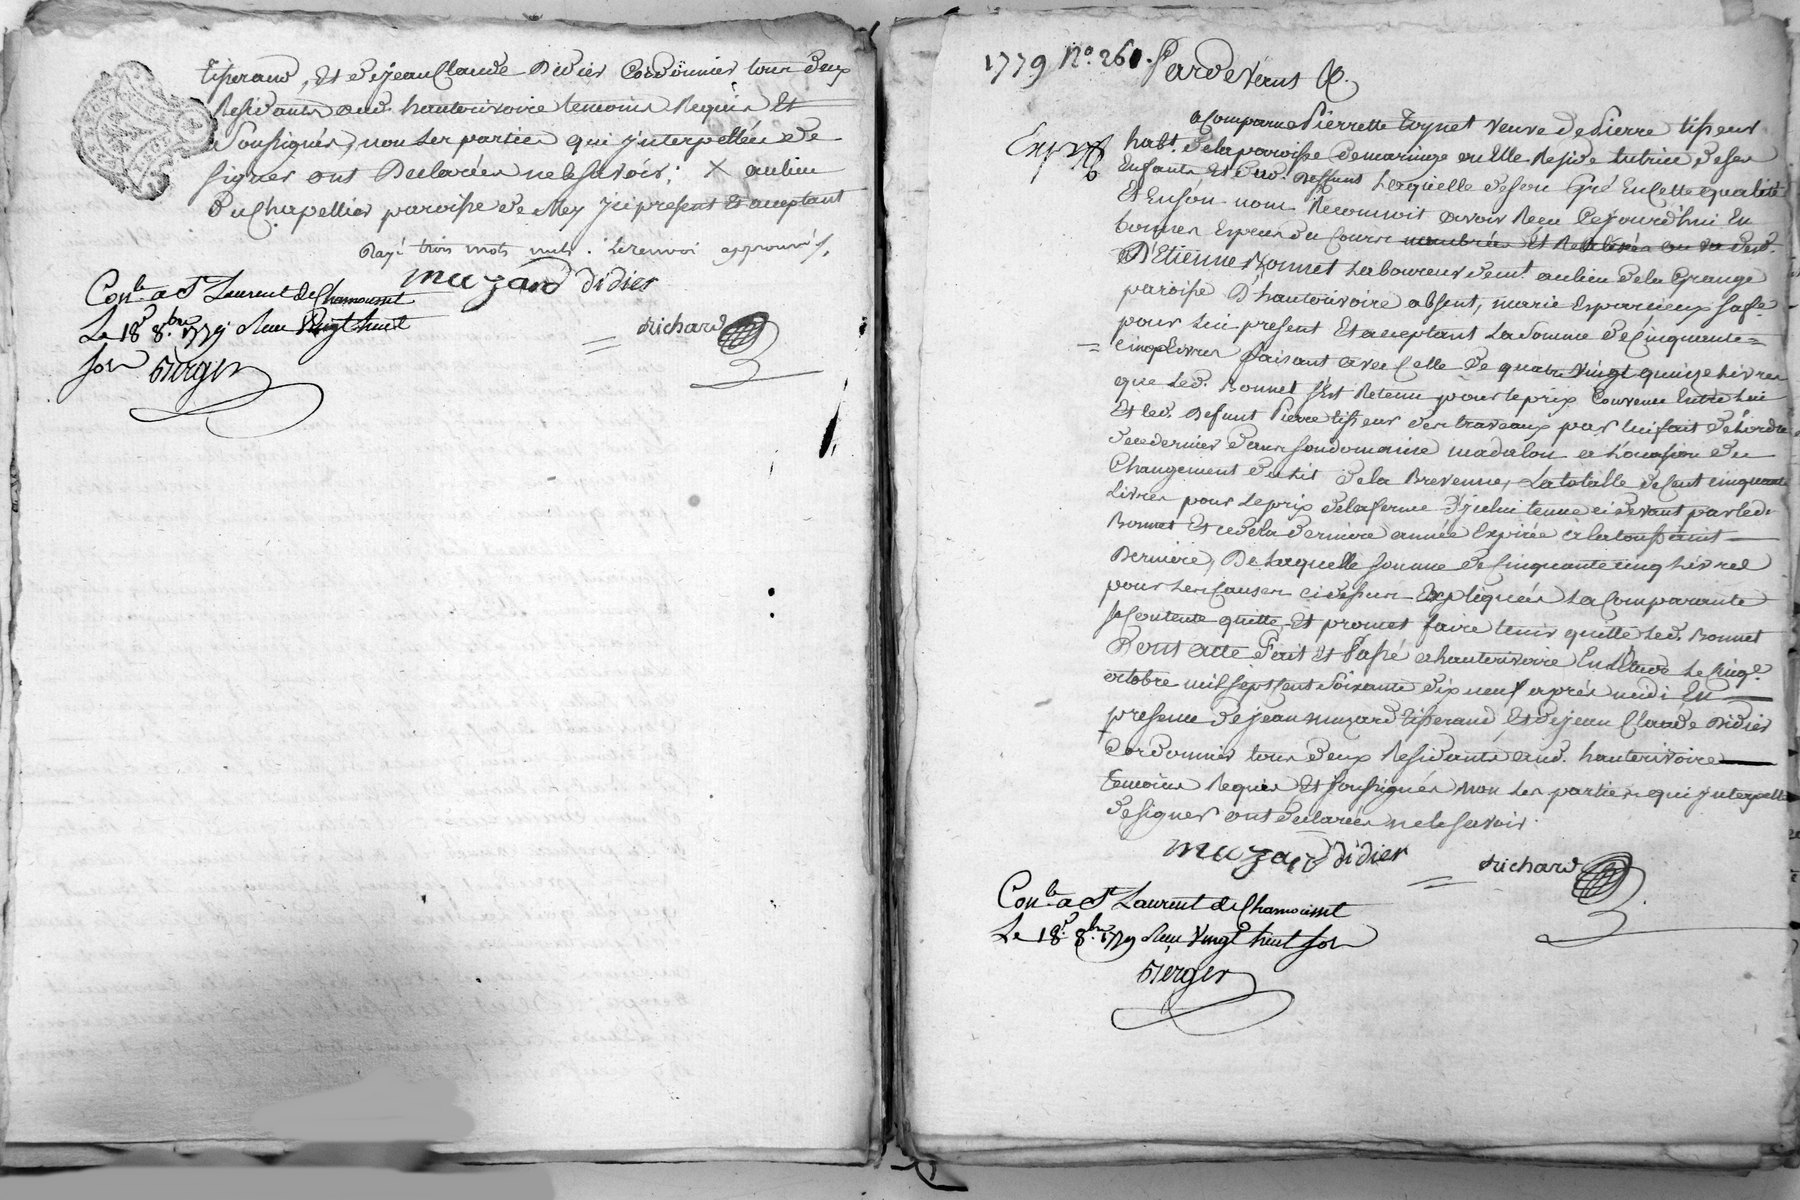 tisserand, Et de jean Claude Didier Cordonnier tous deux
Residants aud. hauterivoire temoins Requis Et
Soussignés, non les parties qui interpellées de
signer ont Declarées ne le savoir; X au lieu
du Chapellier paroisse de Mey ici present Et acceptant
Rayé trois mots nuls. Le renvoi approuvés.
muzard didier
Con.le a St Laurent de Chamousset
Le 18e 8.bre 1779 Reçu Vingt huit
sols Berger
Richard
1779 No. 261. Pardevant &.
Exp.
a Comparue Pierrette Toynet veuve de Pierre tisseur
hab.t de la paroisse de maringe ou Elle Reside tutrice de ses
Enfants Et dud. Deffunt Laquelle de son Gré En Cette qualité
Et En son nom Reconnoit avoir Recu Cejourd'hui En
bonnes Especes du Cours nombrées Et Retirées au vu
D'Etienne Bonnet Laboureur dem.t au lieu de la Grange
paroisse D'hauterivoire absent, marie Esparcieux sa fe.
pour lui present Et acceptant La Somme de Cinquante =
= Cinq Livres faisant avec Celle de quatre vingt quinze Livres
que led. Bonnet s'Est Retenu pour le prix Convenu Entre lui
Et led. Defunt Pierre tisseur des travaux par lui fait de L'ordre
de ce dernier dans son domaine madalon a L'occasion du
Changement du Lit de la Brevenne, La totalle de Cent cinquante
Livres pour le prix de la ferme D'icelui tenue ci devant par led.
Bonnet Et ce de la derniere année Expirée à la toussaint
Derniere, De Laquelle somme de Cinquante cinq Livres
pour Les Causes ci dessus Expliquées La Comparante
se Contente quitte, Et promet faire tenir quitte led. Bonnet
Dont acte Fait Et Passé a hauterivoire En L'Etude Le Cinq.e
octobre mil sept Cent soixante dix neuf après midi En
presence de jean muzard tisserand, Et de jean Claude Didier
Cordonnier tous deux Residants aud. hauterivoire
temoins Requis Et soussignés non Les parties qui interpellées
de signer ont declarées ne le savoir.
muzard didier
Richard
Con.le a St Laurent de Chamousset
Le 18e. 8.bre 1779 Reçu Vingt huit sols
Berger